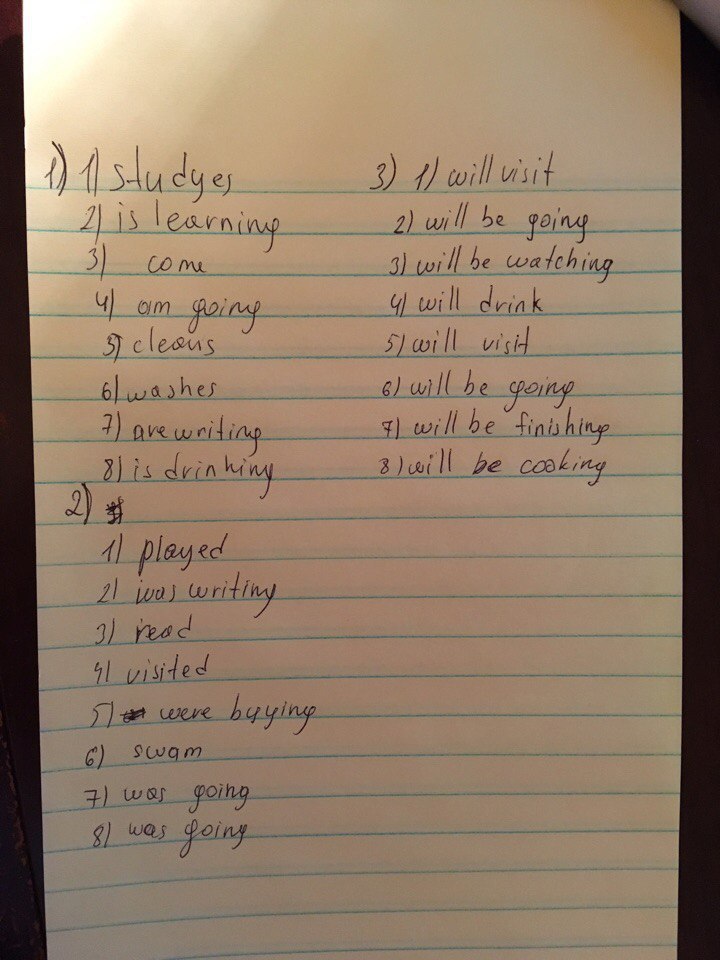 1) 1) studyes
2) is learning
3) come
4) am going
5) cleans
6) washes
7) are writing
8) is drinking
2)
1) played
2) was writing
3) read
4) visited
5) were buying
6) swam
7) was going
8) was going
3) 1) will visit
2) will be going
3) will be watching
4) will drink
5) will visit
6) will be going
7) will be finishing
8) will be cooking